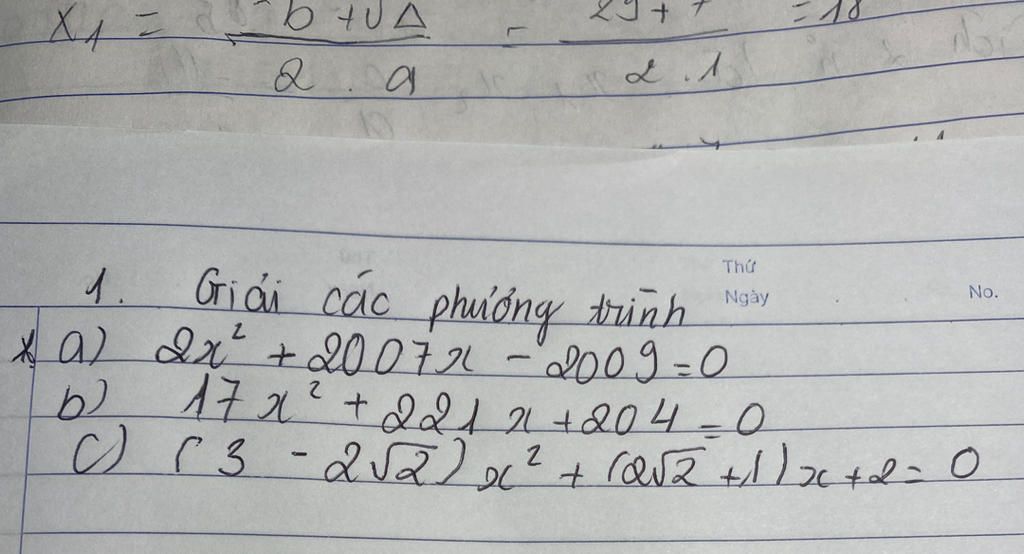 x₁ = -b + √Δ / 2 . a = 29 + 7 / 2 . 1 = 18
Thứ
1. Giải các phương trình
Ngày No.
a) 2x² + 2007x - 2009 = 0
b) 17x² + 221x + 204 = 0
c) (3 - 2√2)x² + (2√2 + 1)x + 2 = 0